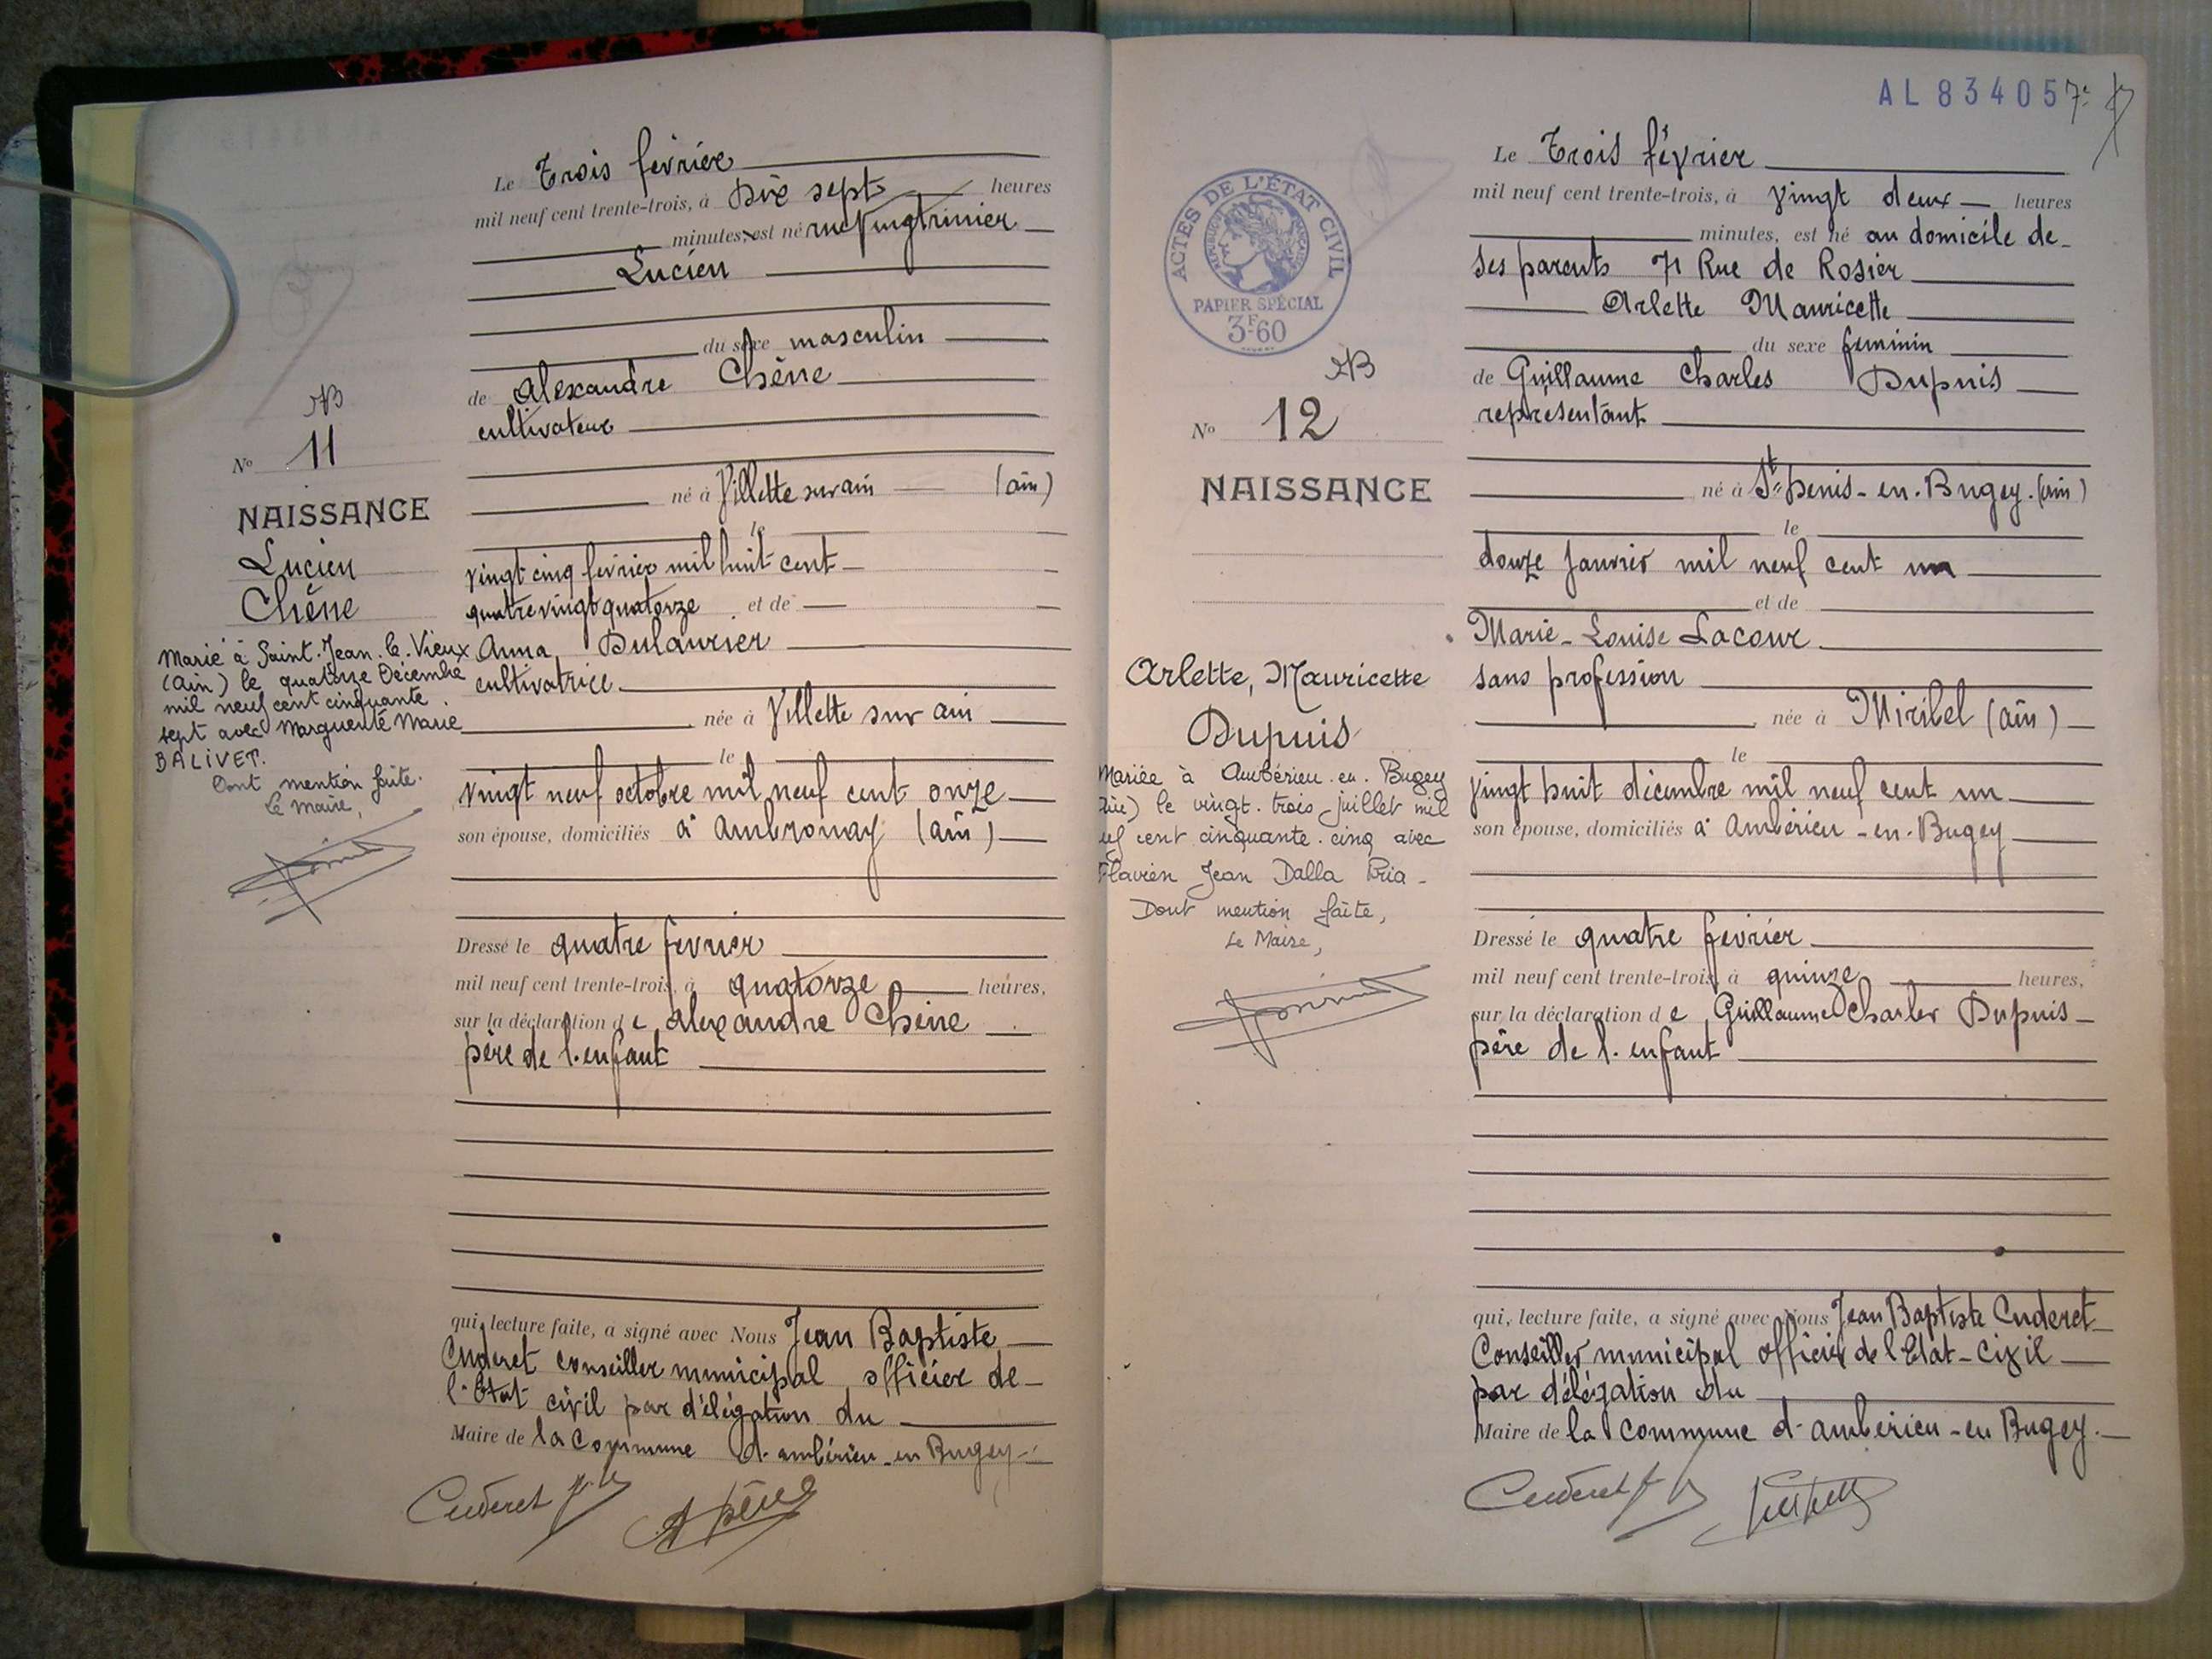 Le Trois février
mil neuf cent trente-trois, à Dix sept heures
minutes, est né rue Vingtrinier
Lucien
du sexe masculin
de Alexandre Chêne
cultivateur
né à Villette sur ain (ain)
le
vingt cinq février mil huit cent
quatre vingt quatorze et de
Anna Dulaurier
cultivatrice
née à Villette sur ain
le
vingt neuf octobre mil neuf cent onze
son épouse, domiciliés à Ambronay (ain)
Dressé le quatre février
mil neuf cent trente-trois, à quatorze heures,
sur la déclaration de Alexandre Chêne
père de l'enfant
qui, lecture faite, a signé avec Nous Jean Baptiste
Cuderet conseiller municipal officier de
l'Etat civil par délégation du
Maire de la Commune d'ambérieu-en Bugey
Cuderet
No 11
NAISSANCE
Lucien
Chêne
Marié à Saint-Jean-le-Vieux
(Ain) le quatorze Décembre
mil neuf cent cinquante
sept avec Marguerite Marie
BALIVET.
Dont mention faite.
Le Maire,
AL 834057
7e
ACTES DE L'ÉTAT CIVIL
RÉPUBLIQUE FRANÇAISE
PAPIER SPÉCIAL
3F60
No 12
NAISSANCE
Arlette, Mauricette
Dupuis
Mariée à Ambérieu-en-Bugey
Ain) le vingt-trois juillet mil
uf cent cinquante-cinq avec
Flavien Jean Dalla Pria
Dont mention faite,
Le Maire,
Le Trois février
mil neuf cent trente-trois, à vingt deux heures
minutes, est né au domicile de
ses parents 71 Rue de Rosier
Arlette Mauricette
du sexe feminin
de Guillaume Charles Dupuis
representant
né à St Denis-en-Bugey (ain)
le
douze janvier mil neuf cent un
et de
Marie-Louise Lacour
sans profession
née à Miribel (ain)
le
vingt huit décembre mil neuf cent un
son épouse, domiciliés à Ambérieu-en-Bugey
Dressé le quatre février
mil neuf cent trente-trois, à quinze heures,
sur la déclaration de Guillaume Charles Dupuis
père de l'enfant
qui, lecture faite, a signé avec Nous Jean Baptiste Cuderet
Conseiller municipal officier de l'Etat-Civil
par délégation du
Maire de la Commune d'ambérieu-en Bugey.
Cuderet